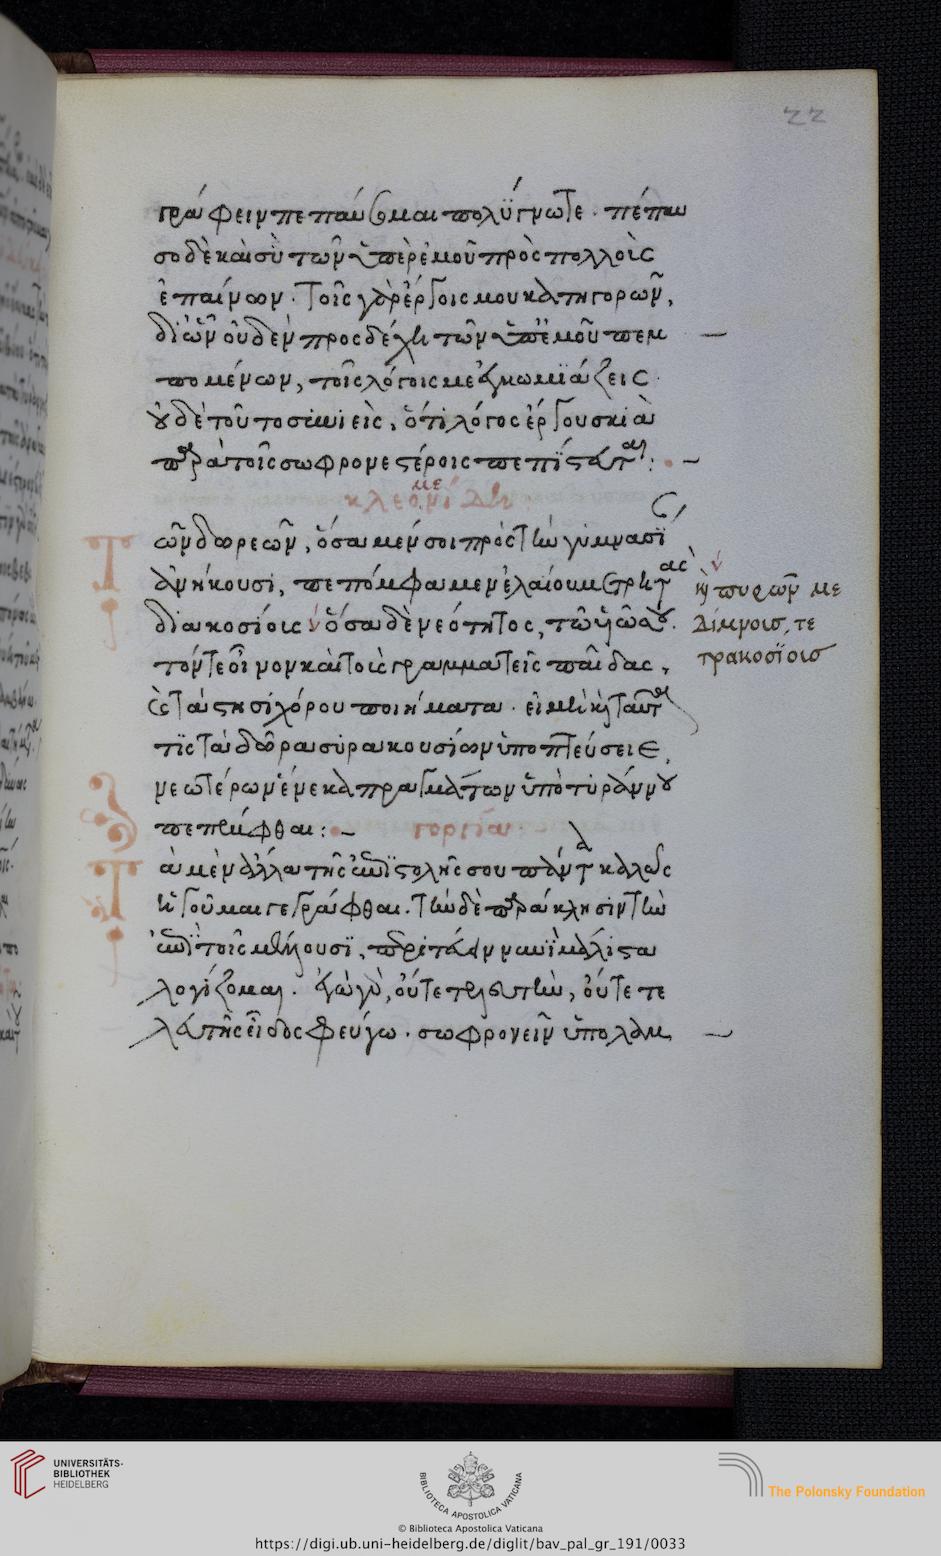 22
γράφειν πέπαυμαι πολύγνωτε. πέπαυ
σο δὲ καὶ σὺ τῶν ὑπὲρ ἐμοῦ πρὸς πολλοὺς
ἐπαίνων. τοῖς γὰρ ἔργοις μου κατηγορῶν,
δι' ὧν οὐδὲν προσδέχῃ τῶν ὑπ' ἐμοῦ πεμ
πομένων, τοῖς λόγοις με ἐγκωμιάζεις.
οὐδὲ τοῦτο ὅτι λόγος ἔργου σκιὰ
παρὰ τοῖς σωφρονεστέροις πεπίστευται:
κλεομένει
Τῶν δωρεῶν, ὅσα μέν σοι πρὸς τὴν γυμνασί
ἀνήκουσι, πεπόμφαμεν ἐλαίου μετρητὰς
διακοσίους ὅσα δὲ νεότητος,
καὶ πυρῶν με
δίμνοις, τε
τρακοσίοις
τόν τε οἶνον καὶ τοὺς γραμματεῖς παῖδας,
καὶ τὰ στησιχόρου ποιήματα. εἰ μὴ καὶ ταῦτα
τὶς τὰ δῶρα συρακουσίων ὑποπτεύσειε
νεωτέρων ἕνεκα πραγμάτων ὑπὸ τυράννου
πεπέμφθαι:
γοργίᾳ
Τὰ μὲν ἄλλα τῆς ἐπιστολῆς σου πάντα καλῶς
ἡγοῦμαι γεγράφθαι. τὴν δὲ παράκλησιν τὴν
ἐπὶ τοῖς
λογίζομαι. ἐγὼ γὰρ, οὔτε οὔτε τε
λευτῆς εἶδος φεύγω. σωφρονεῖν ὑπολαμ
UNIVERSITÄTS-
BIBLIOTHEK
HEIDELBERG
BIBLIOTECA APOSTOLICA VATICANA
The Polonsky Foundation
© Biblioteca Apostolica Vaticana
https://digi.ub.uni-heidelberg.de/diglit/bav_pal_gr_191/0033